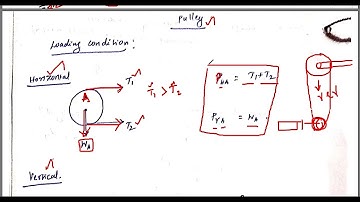 Pulley
Loading condition:
Horizontal
A
T₁
T₁ > T₂
T₂
W_A
P_HA = T₁+T₂
P_VA = W_A
Vertical.